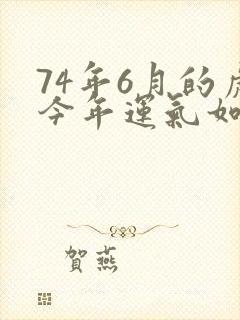 74年6月的
今年運氣如
賀燕